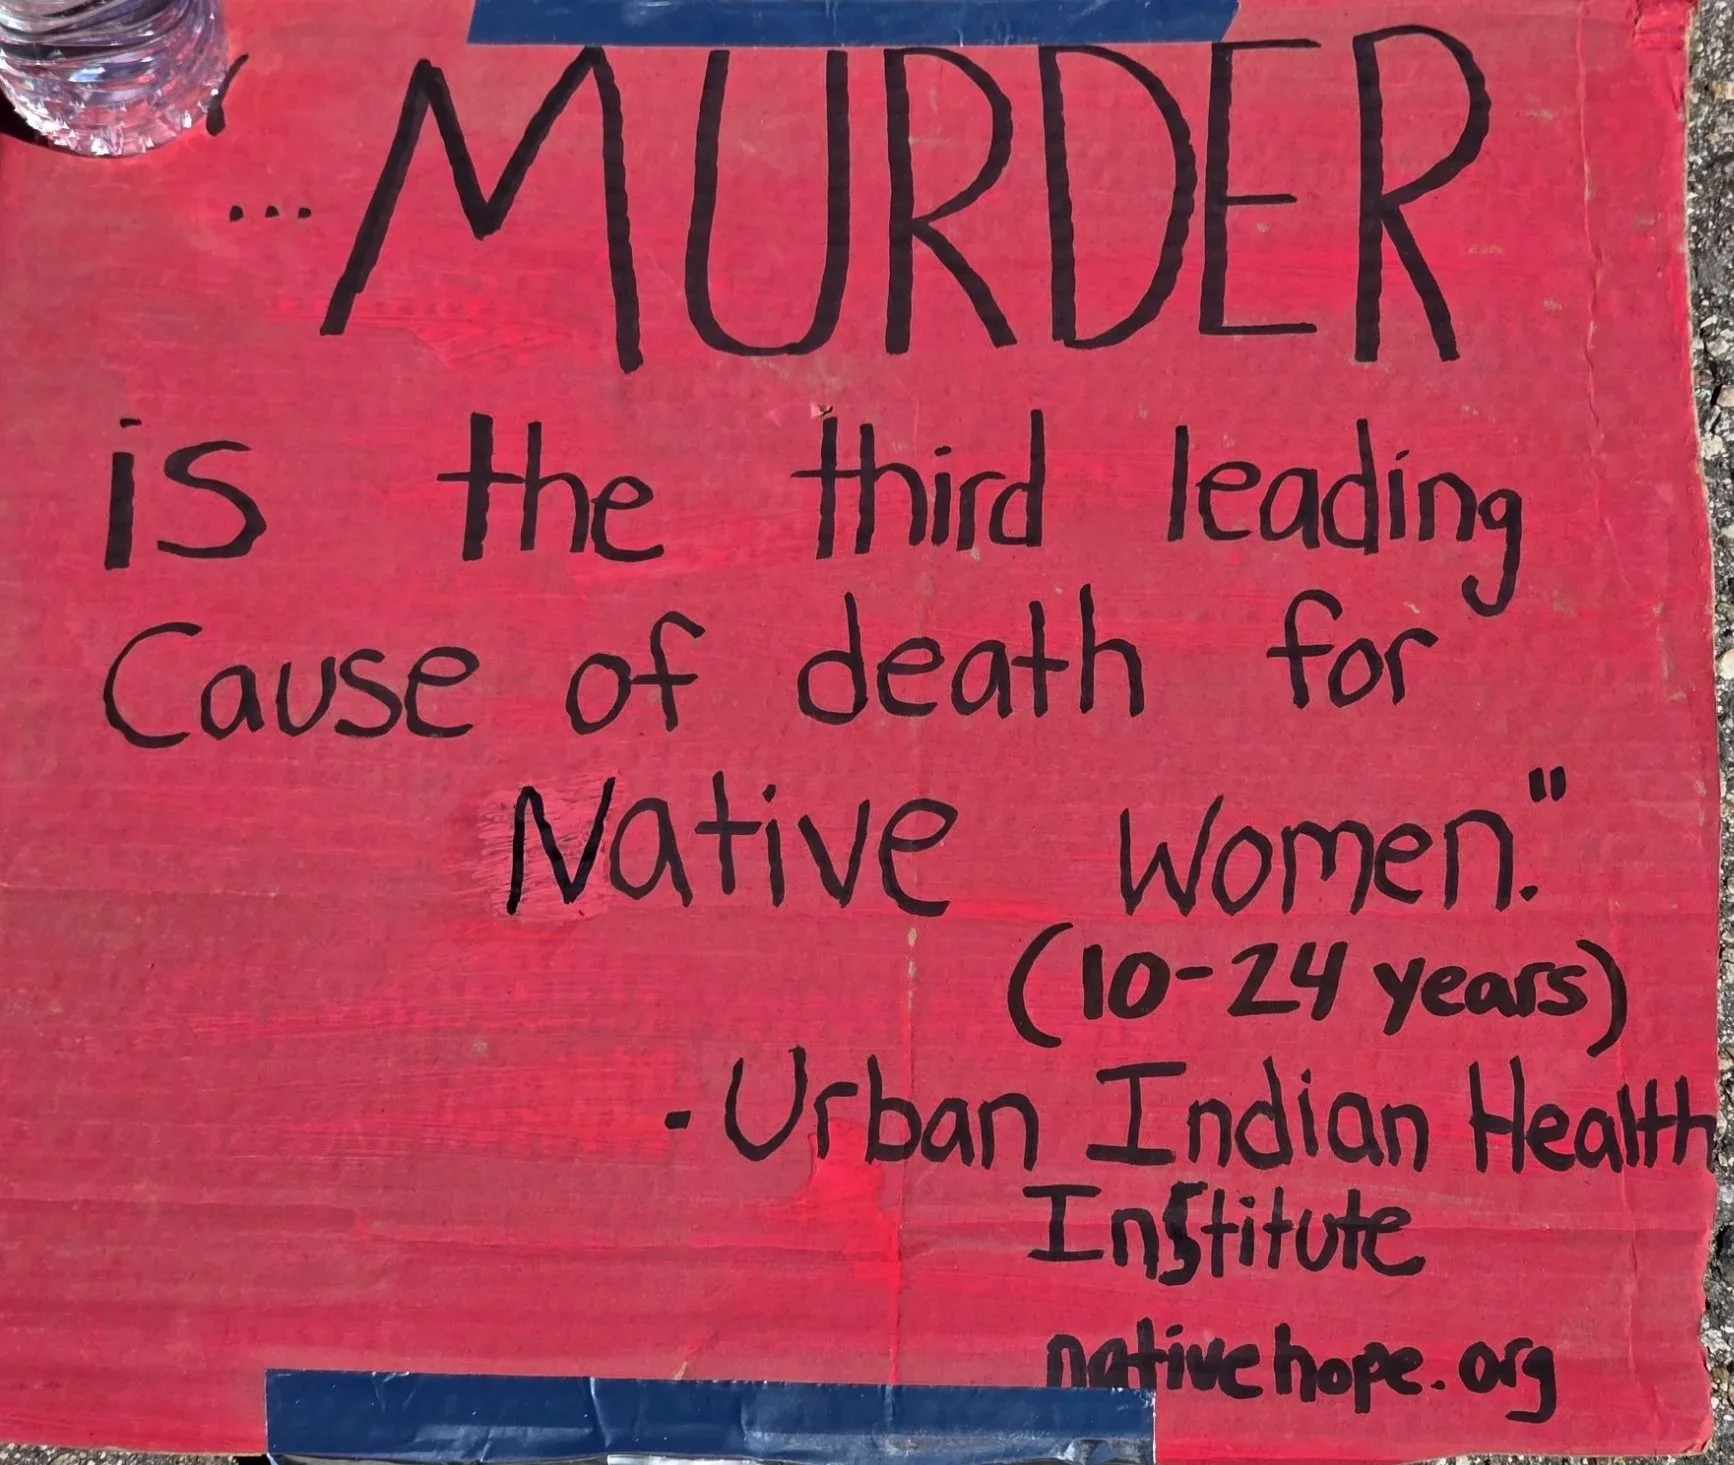 "...MURDER
is the third leading
Cause of death for
Native Women."
(10-24 years)
- Urban Indian Health
Institute
nativehope.org